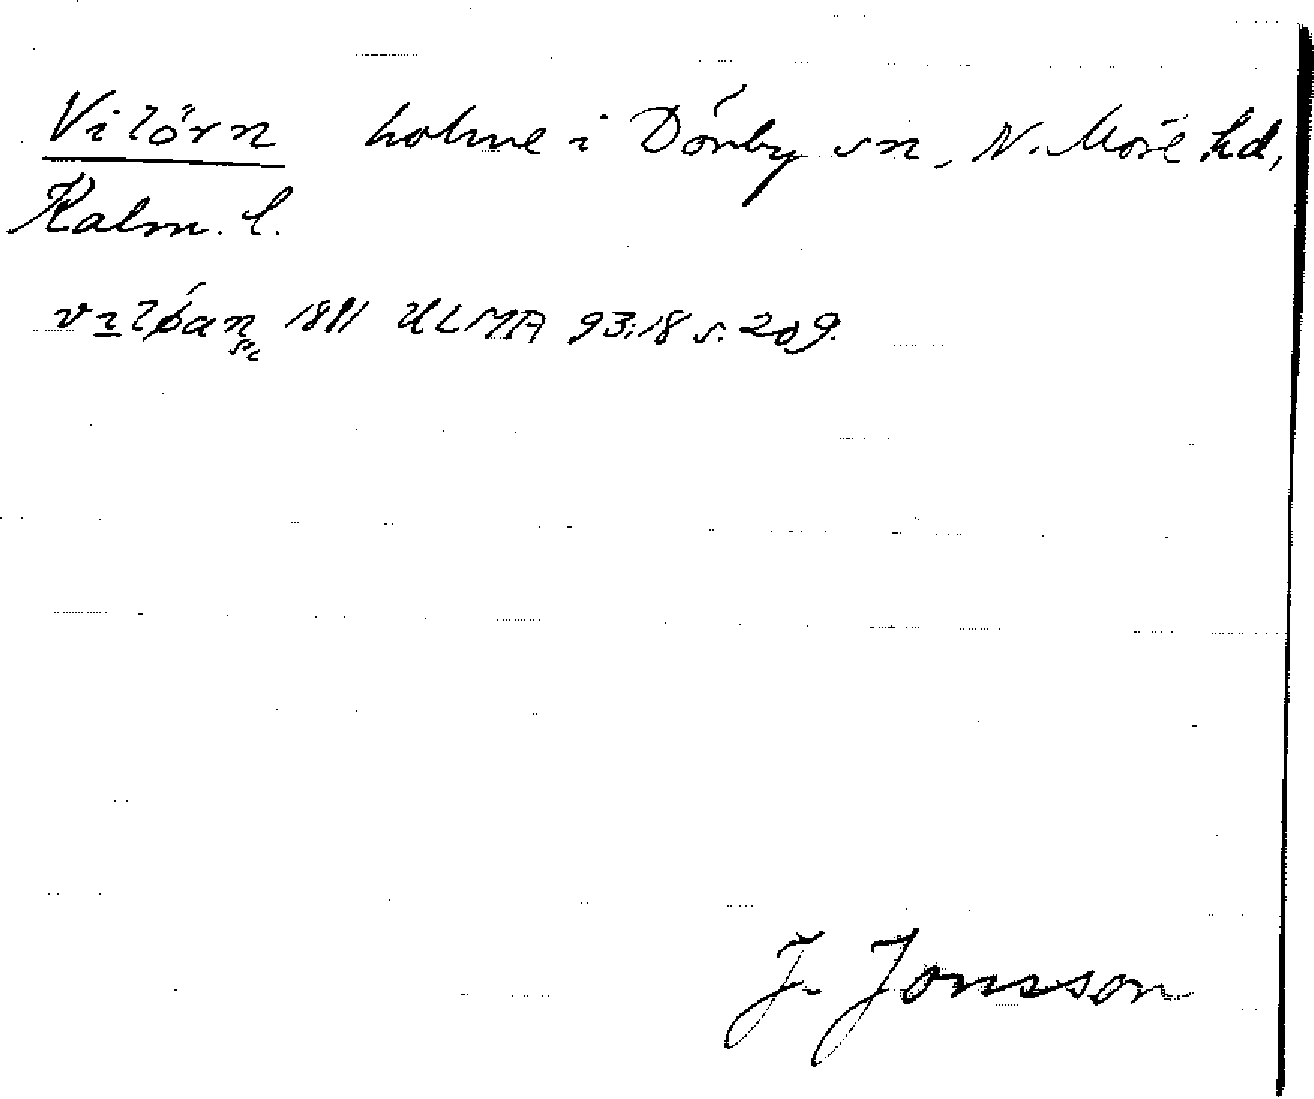 Vilörn holme i Dörby sn, N. Möre hd,
Kalm. l.
1891 ULMA 93:18 s. 209.
J. Jonsson